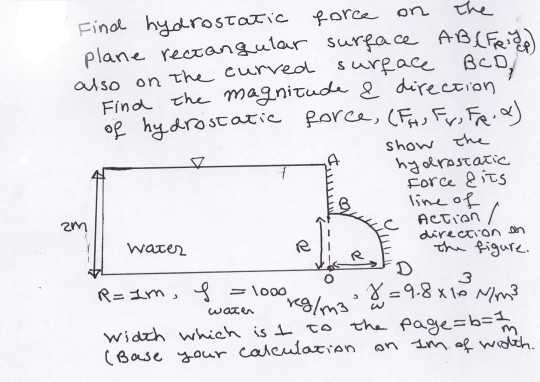 Find hydrostatic force on the
plane rectangular surface AB (FR, ycp)
also on the curved surface BCD,
Find the magnitude & direction
of hydrostatic force, (FH, FV, FR, α)
show the
hydrostatic
Force & its
line of
Action /
direction on
the figure.
A
B
C
2m
water
R
R
O
D
R = 1m, ρwater = 1000 kg/m3, γw = 9.8 x 10³ N/m³
width which is ⊥ to the page = b = 1m
(Base your calculation on 1m of width.